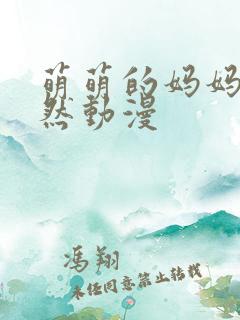 萌萌的妈妈
然動漫
馮翔
未经同意禁止转载